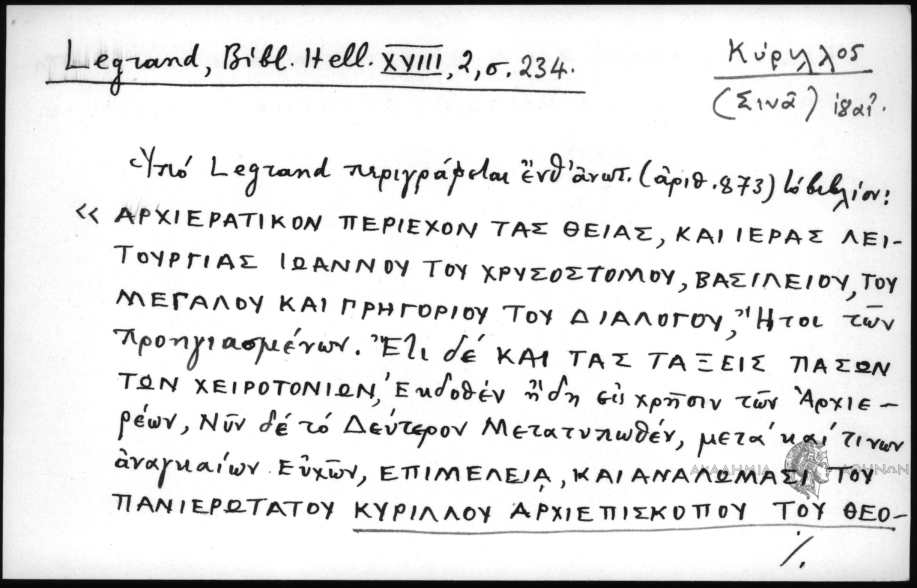 Legrand, Bibl. Hell. XVIII, 2, σ. 234.
Κύριλλος
(Σινᾶ) ιβαʹ.
Ὑπό Legrand περιγράφεται ἔνθ' ἀνωτ. (ἀριθ. 873) τό βιβλίον:
« ΑΡΧΙΕΡΑΤΙΚΟΝ ΠΕΡΙΕΧΟΝ ΤΑΣ ΘΕΙΑΣ, ΚΑΙ ΙΕΡΑΣ ΛΕΙ-
ΤΟΥΡΓΙΑΣ ΙΩΑΝΝΟΥ ΤΟΥ ΧΡΥΣΟΣΤΟΜΟΥ, ΒΑΣΙΛΕΙΟΥ, ΤΟΥ
ΜΕΓΑΛΟΥ ΚΑΙ ΓΡΗΓΟΡΙΟΥ ΤΟΥ ΔΙΑΛΟΓΟΥ, Ἤτοι τῶν
Προηγιασμένων. Ἔτι δέ ΚΑΙ ΤΑΣ ΤΑΞΕΙΣ ΠΑΣΩΝ
ΤΩΝ ΧΕΙΡΟΤΟΝΙΩΝ, Ἐκδοθέν ἤδη εἰς χρῆσιν τῶν Ἀρχιε-
ρέων, Νῦν δέ τό Δεύτερον Μετατυπωθέν, μετά καί τινων
ἀναγκαίων Εὐχῶν, ΕΠΙΜΕΛΕΙᾼ, ΚΑΙ ΑΝΑΛΩΜΑΣΙ ΤΟΥ
ΑΚΑΔΗΜΙΑ ΑΘΗΝΩΝ
ΠΑΝΙΕΡΩΤΑΤΟΥ ΚΥΡΙΛΛΟΥ ἈΡΧΙΕΠΙΣΚΟΠΟΥ ΤΟΥ ΘΕΟ-
./.